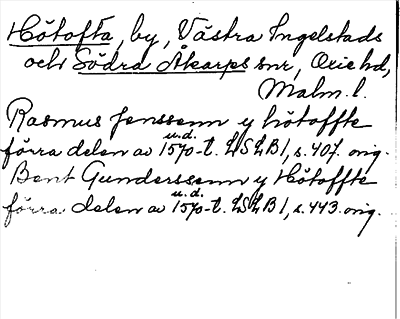 Hötofta, by, Västra Ingelstads
och Södra Åkarps snr, Oxie hd,
Malm. l.
Rasmus Jenssenn y hötoffte
förra delen av u.d. 1570-t. LSLB 1, s. 407. orig.
Bent Gunderssenn y Hötoffte
förra delen av u.d. 1570-t. LSLB 1, s. 443. orig.